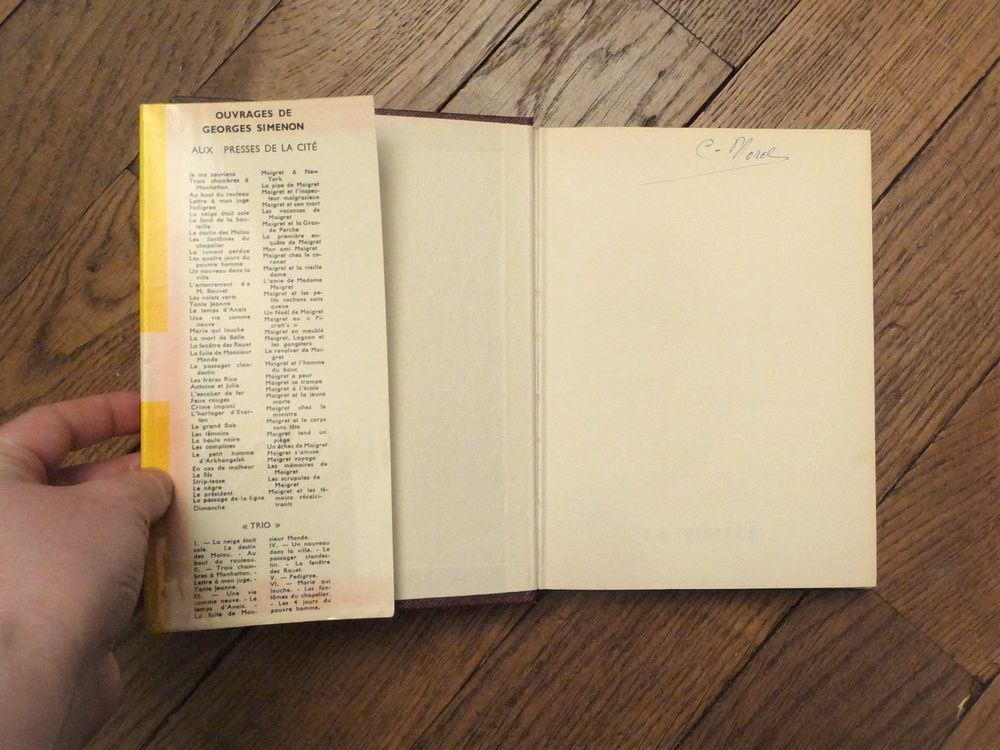 OUVRAGES DE
GEORGES SIMENON
AUX PRESSES DE LA CITÉ
Je me souviens
Trois chambres à
Manhattan
Au bout du rouleau
Lettre à mon juge
Pedigree
La neige était sale
Le fond de la bou-
teille
Le destin des Malou
Les fantômes du
chapelier
La jument perdue
Les quatre jours du
pauvre homme
Un nouveau dans la
ville
L'enterrement de
M. Bouvet
Les volets verts
Tante Jeanne
Le temps d'Anaïs
Une vie comme
neuve
Marie qui louche
La mort de Belle
La fenêtre des Rouet
La fuite de Monsieur
Monde
Le passager clan-
destin
Les frères Rico
Antoine et Julie
L'escalier de fer
Feux rouges
Crime impuni
L'horloger d'Ever-
ton
Le grand Bob
Les témoins
La boule noire
Les complices
Le petit homme
d'Arkhangelsk
En cas de malheur
Le fils
Strip-tease
Le nègre
Le président
Le passage de la ligne
Dimanche
Maigret à New
York
La pipe de Maigret
Maigret et l'inspec-
teur malgracieux
Maigret et son mort
Les vacances de
Maigret
Maigret et la Gran-
de Perche
La première en-
quête de Maigret
Mon ami Maigret
Maigret chez le co-
roner
Maigret et la vieille
dame
L'amie de Madame
Maigret
Maigret et les pe-
tits cochons sans
queue
Un Noël de Maigret
Maigret au « Pi-
cratt's »
Maigret en meublé
Maigret, Lognon et
les gangsters
Le revolver de Mai-
gret
Maigret et l'homme
du banc
Maigret a peur
Maigret se trompe
Maigret à l'école
Maigret et la jeune
morte
Maigret chez le
ministre
Maigret et le corps
sans tête
Maigret tend un
piège
Un échec de Maigret
Maigret s'amuse
Maigret voyage
Les mémoires de
Maigret
Les scrupules de
Maigret
Maigret et les té-
moins récalci-
trants
« TRIO »
I. — La neige était
sale. Le destin
des Malou. - Au
bout du rouleau.
II. — Trois cham-
bres à Manhattan. -
Lettre à mon juge. -
Tante Jeanne.
III. — Une vie
comme neuve. - Le
temps d'Anaïs. -
La fuite de Mon-
sieur Monde.
IV. — Un nouveau
dans la ville. - Le
passager clandes-
tin. - La fenêtre
des Rouet.
V. — Pedigree.
VI. — Marie qui
louche. - Les fan-
tômes du chapelier.
- Les 4 jours du
pauvre homme.
C - Morel